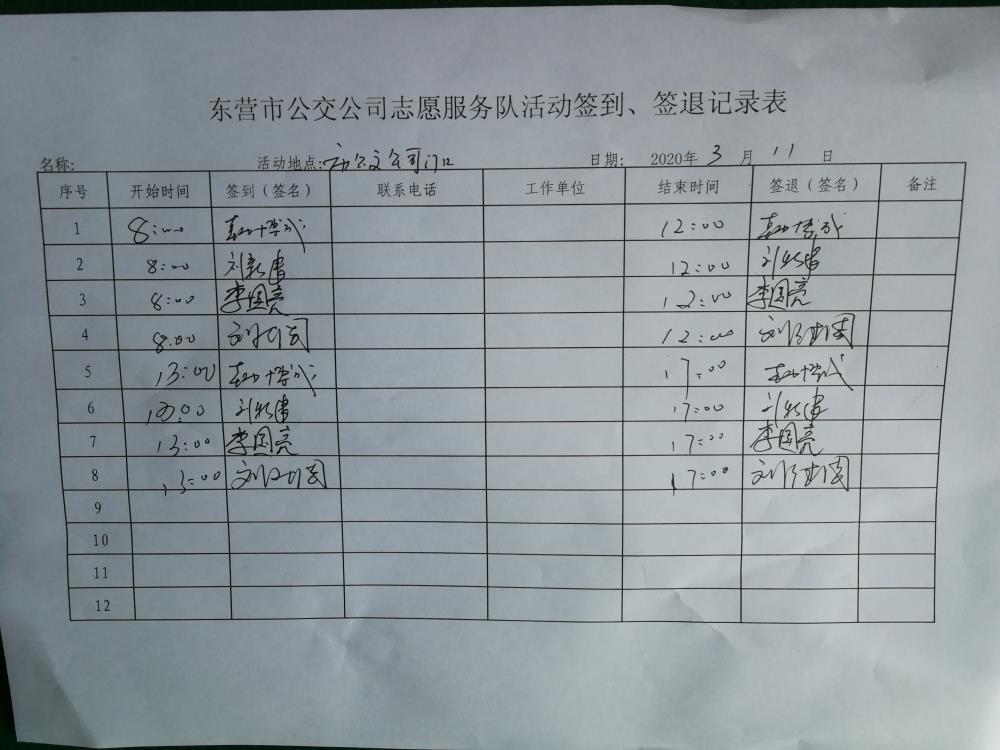 东营市公交公司志愿服务队活动签到、签退记录表
名称: 活动地点:市公交公司门口 日期: 2020年 3 月 11 日
序号 开始时间 签到（签名） 联系电话 工作单位 结束时间 签退（签名） 备注
1 8:00 12:00
2 8:00 刘新建 12:00 刘新建
3 8:00 李国亮 12:00 李国亮
4 8:00 刘 12:00 刘
5 13:00 17:00
6 13:00 刘新建 17:00 刘新建
7 13:00 李国亮 17:00 李国亮
8 13:00 刘 17:00 刘
9
10
11
12